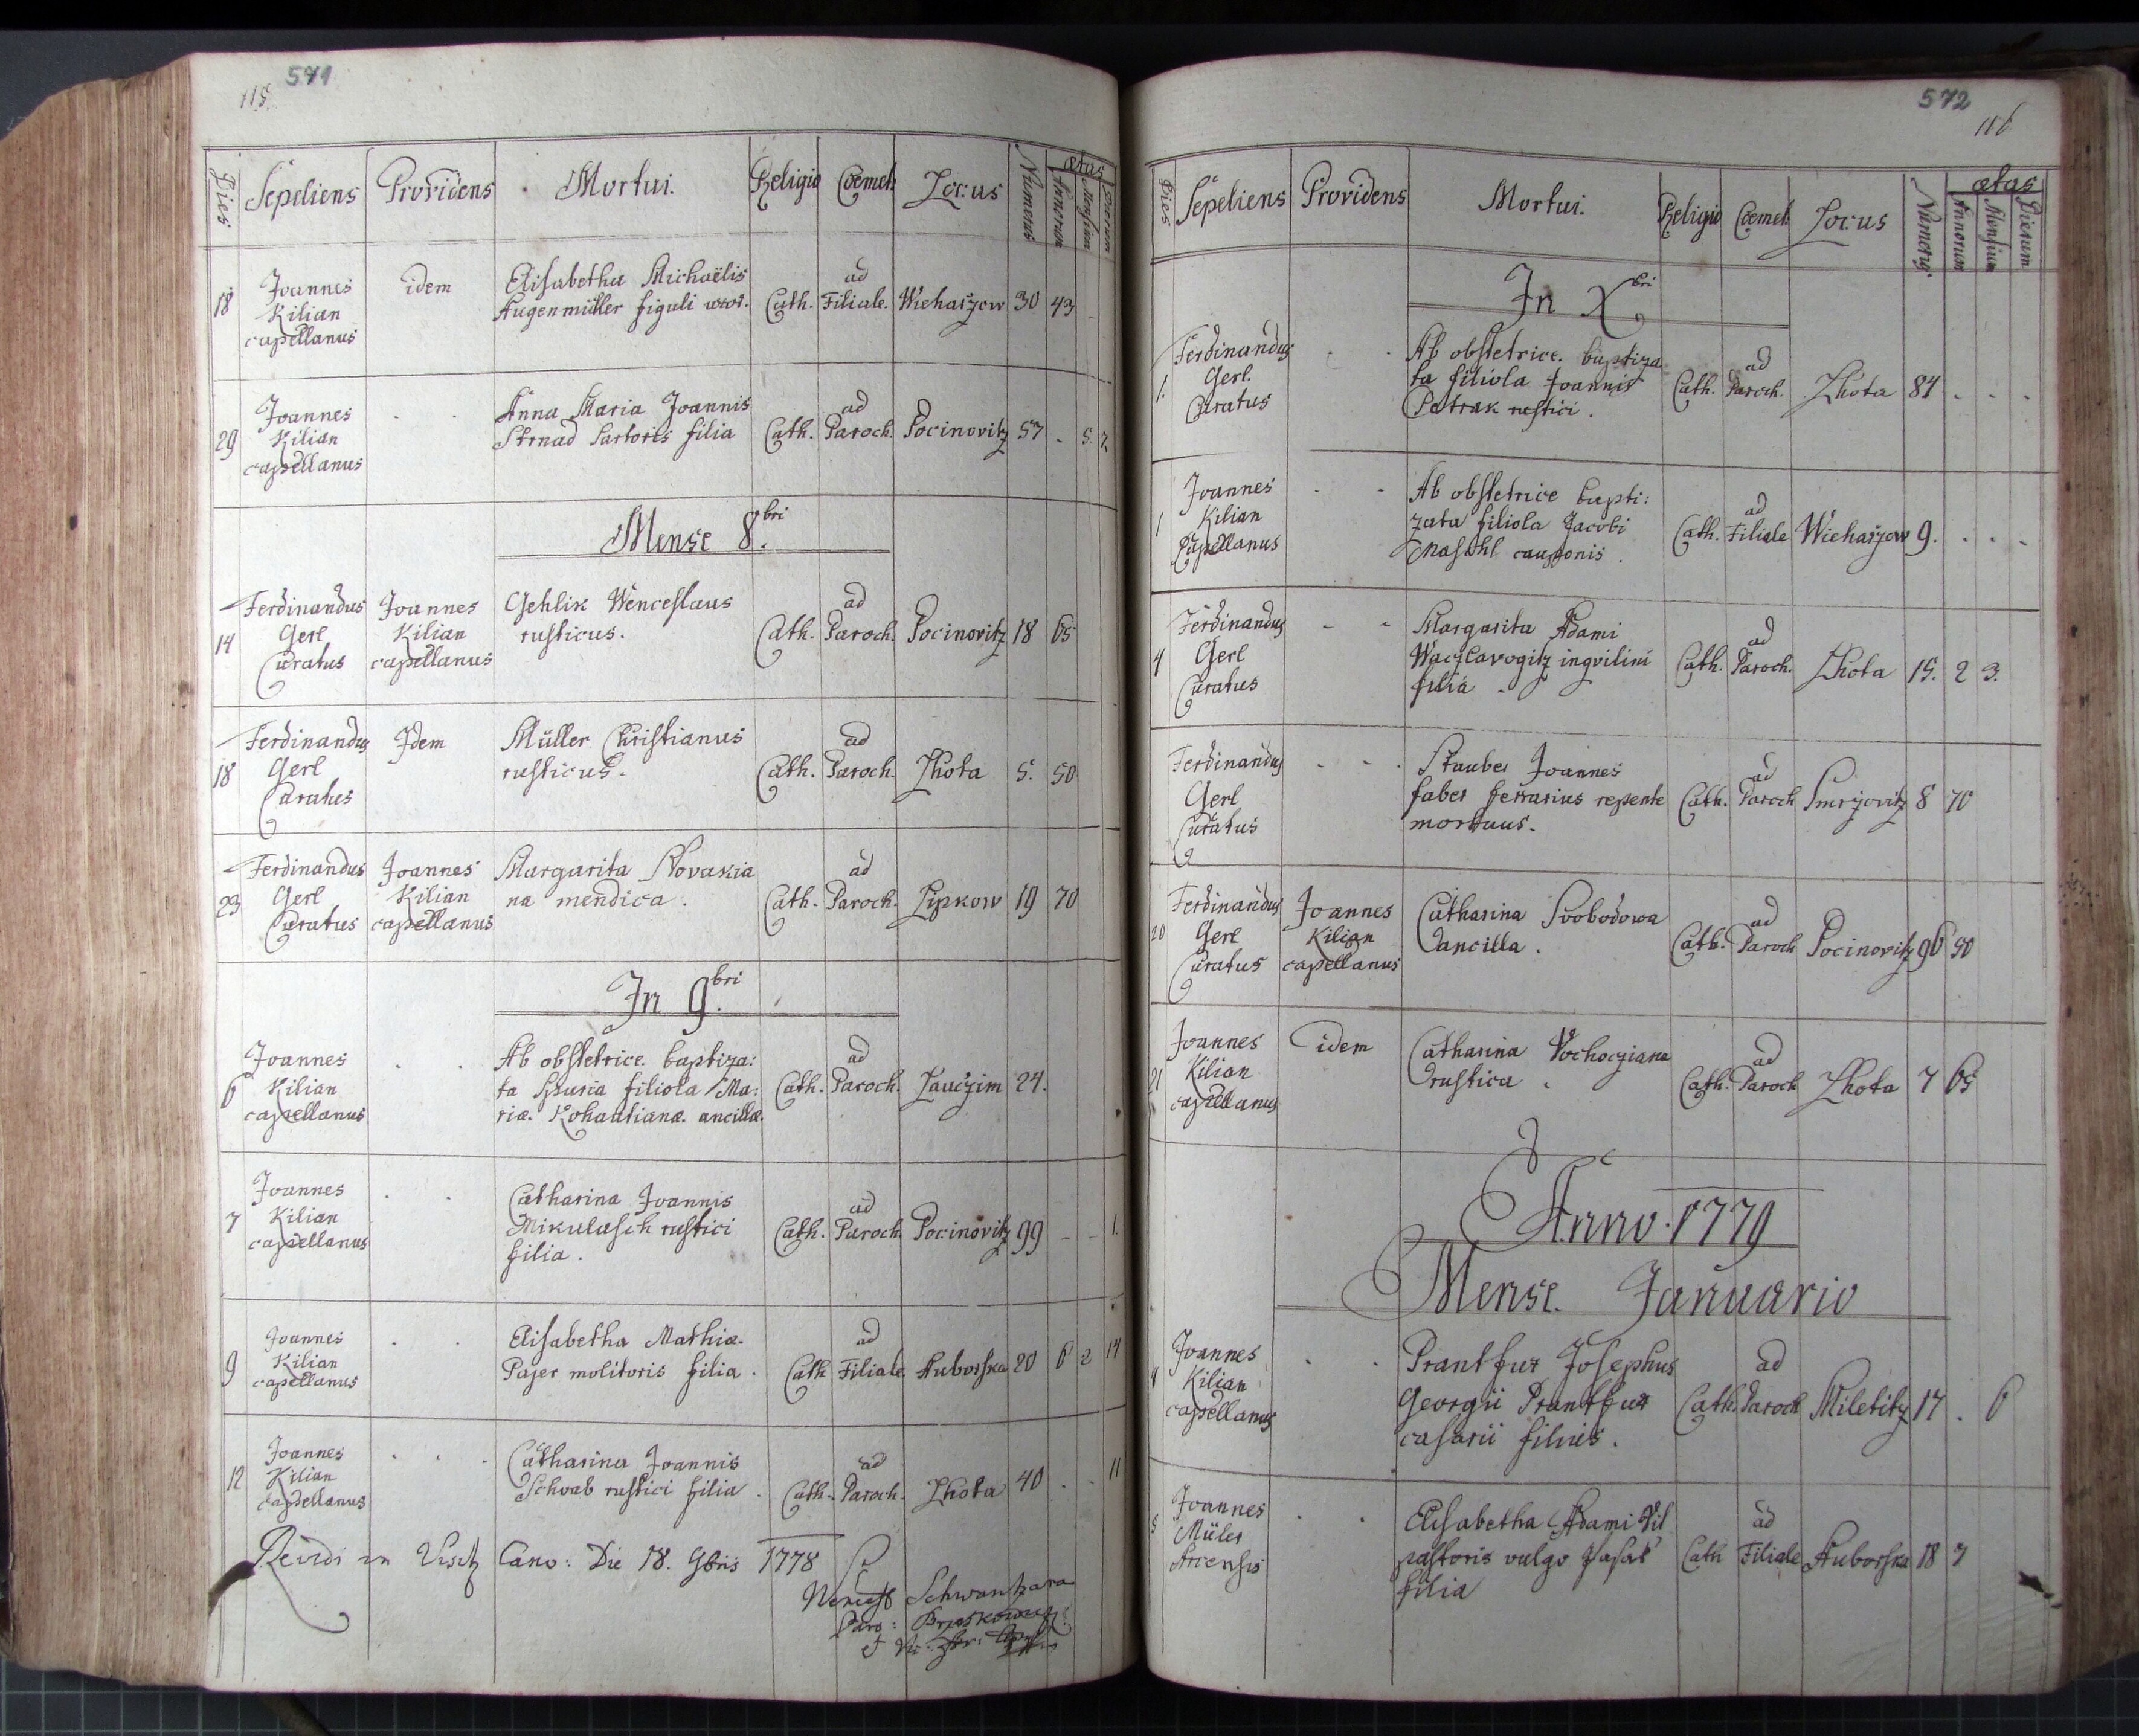 571
115.
Dies Sepeliens Providens Mortui. Religio Coemet. Locus Numerus ætas Annorum Mensium Dierum
18 Joannes Kilian capellanus idem Elisabetha Michaëlis
Augenmüller figuli uxor. Cath. ad Filiale. Wiehařzow 30 43 -
29 Joannes Kilian capellanus - - Anna Maria Joannis
Strnad Sartoris filia Cath. ad Paroch. Pocinovitz 57 - 5. 7.
Mense 8bri.
14 Ferdinandus Gerl Curatus Joannes Kilian capellanus Gehlik Wenceslaus
rusticus. Cath. ad Paroch. Pocinovitz 18 65
18 Ferdinandus Gerl Curatus Idem Müller Christianus
rusticus. Cath. ad Paroch. Lhota 5. 50
23 Ferdinandus Gerl Curatus Joannes Kilian capellanus Margarita Novakia
na mendica. Cath. ad Paroch. Lipkow 19 70
In 9bri.
6 Joannes Kilian capellanus - - Ab obstetrice baptiza:
ta Spuria filiola Ma:
riæ Kohautianæ ancillæ. Cath. ad Paroch. Lauczim 24.
7 Joannes Kilian capellanus - - Catharina Joannis
Mikulasch rustici
filia. Cath. ad Paroch. Pocinovitz 99 - - 1.
9 Joannes Kilian capellanus - - Elisabetha Mathiæ
Pajer molitoris filia. Cath ad Filiale. Auborska 20 6 2 14
12 Joannes Kilian capellanus - - - Catharina Joannis
Schvab rustici filia. Cath. ad Paroch. Lhota 40 - - 11
Revidi in Visit Cano: Die 18. 9bris 1778
Schwantzara
572
116
Dies Sepeliens Providens Mortui. Religio Coemet. Locus Numerus. ætas Annorum Mensium Dierum
In Xbri
1. Ferdinandus Gerl. Curatus - - Ab obstetrice. baptiza
ta filiola Joannis
Petrak rustici. Cath. ad Paroch. Lhota 84 - - -
1 Joannes Kilian Capellanus - - Ab obstetrice bapti:
zata filiola Jacobi
cauponis. Cath. ad Filiale Wiehařzow 9. - - -
4 Ferdinandus Gerl Curatus - - Margarita Adami
Waczlavogitz inqvilini
filia - Cath. ad Paroch. Lhota 15. 2 3.
Ferdinandus Gerl Curatus - - - Stauber Joannes
faber ferrarius repente
mortuus. Cath. ad Paroch Smržovitz 8 70
20 Ferdinandus Gerl Curatus Joannes Kilian capellanus Catharina Svobodowa
ancilla. Cath. ad Paroch Pocinovitz 96 50
21 Joannes Kilian capellanus idem Catharina Vochocziana
rustica. Cath. ad Paroch Lhota 7 65
Anno 1779
Mense Januario
Joannes Kilian capellanus - - Prantfur Josephus
Georgii Prantfur
casarii filius. Cath. ad Paroch Miletitz 17 - 6
5 Joannes Müler Arcensis - - Elisabetha Adami Vil
pastoris vulgo
filia Cath ad Filiale Auborska 18 7